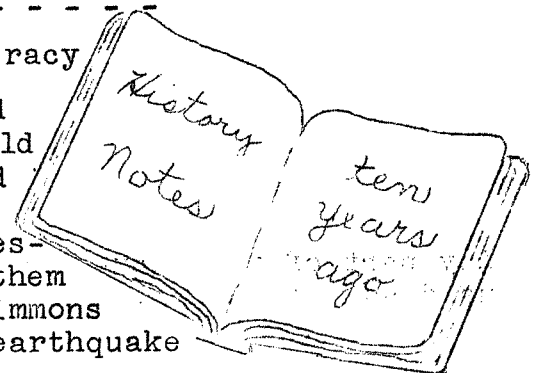 racy
ld
d
es-
them
mmons
earthquake
History
Notes
ten
years
ago